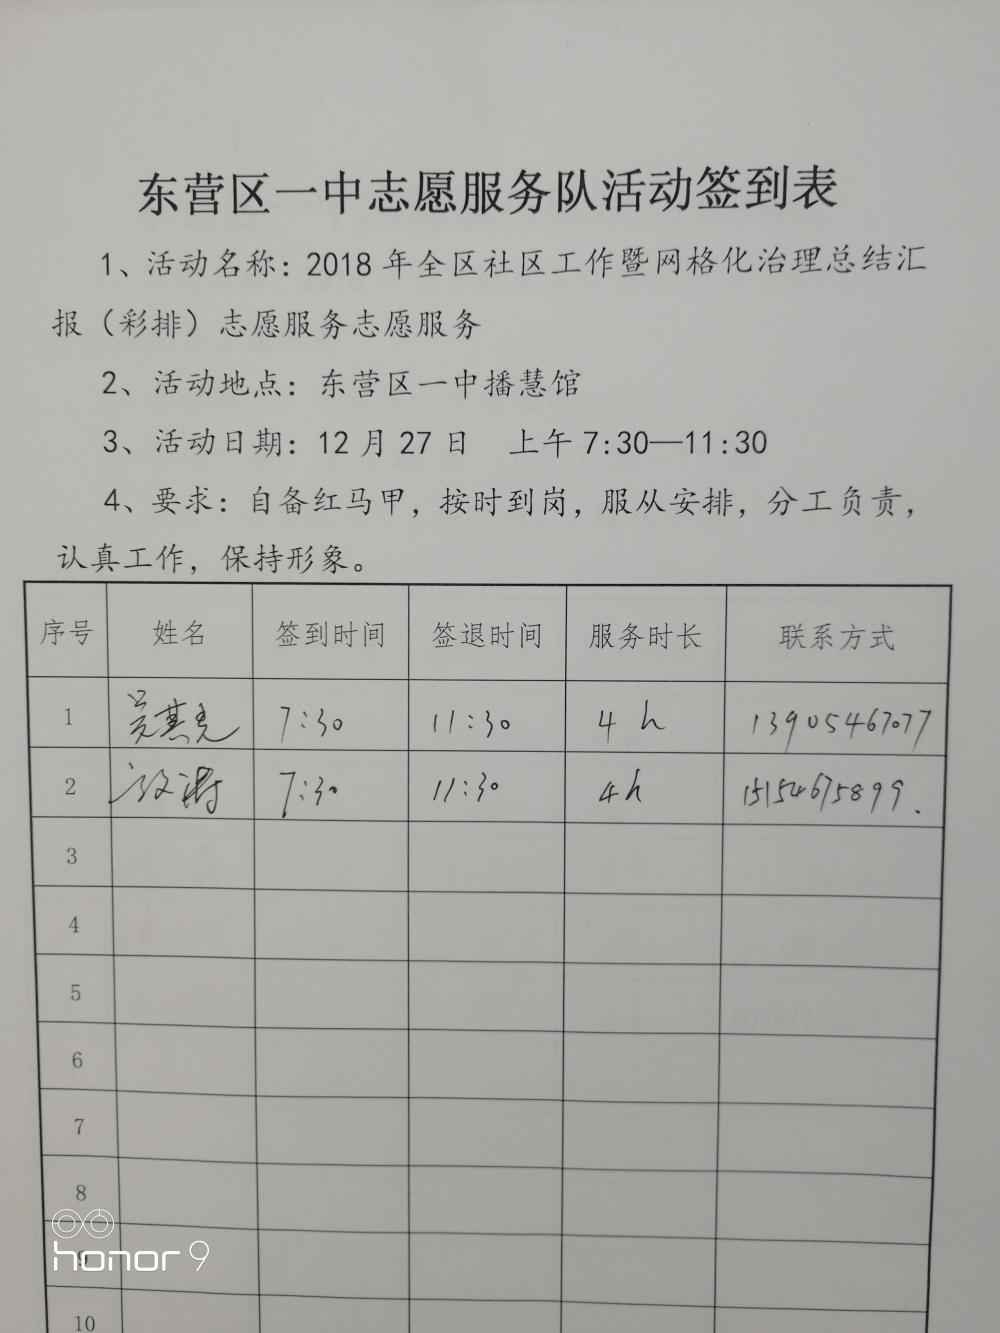 东营区一中志愿服务队活动签到表
1、活动名称：2018年全区社区工作暨网格化治理总结汇
报（彩排）志愿服务志愿服务
2、活动地点：东营区一中播慧馆
3、活动日期：12月27日 上午7:30—11:30
4、要求：自备红马甲，按时到岗，服从安排，分工负责，
认真工作，保持形象。
序号 姓名 签到时间 签退时间 服务时长 联系方式
1 7:30 11:30 4h 13905467077
2 7:30 11:30 4h 15154675899.
3
4
5
6
7
8
9
10
honor 9